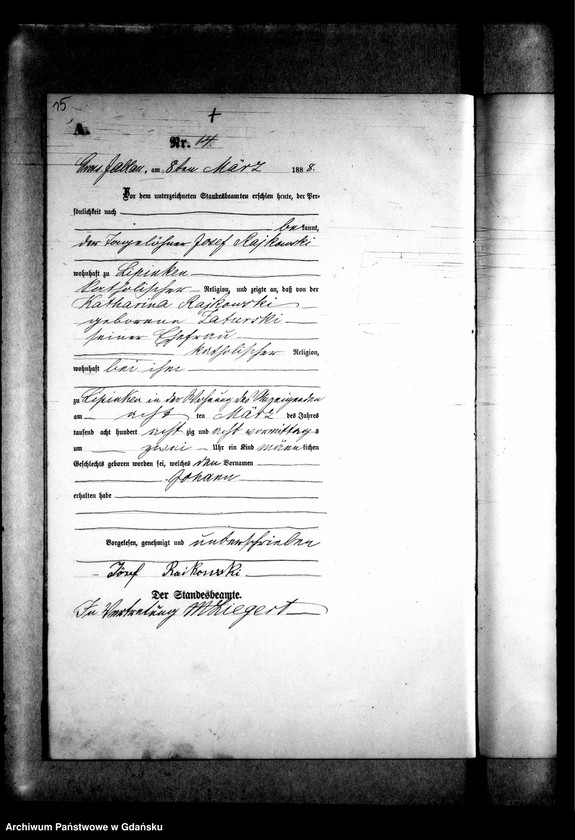 15
A.
Nr. 14.
Gross Jablau, am 8ten März 1888.
Vor dem unterzeichneten Standesbeamten erschien heute, der Per-
sönlichkeit nach
bekannt,
der Tagelöhner Josef Rajkowski
wohnhaft zu Lipinken
katholischer Religion, und zeigte an, daß von der
Katharina Rajkowski
geborene Zaturski
seiner Ehefrau
katholischer Religion,
wohnhaft bei ihm
zu Lipinken in der Wohnung des Anzeigenden
am acht ten März des Jahres
tausend acht hundert acht zig und acht vormittag s
um zwei Uhr ein Kind männlichen
Geschlechts geboren worden sei, welches den Vornamen
Johann
erhalten habe
Vorgelesen, genehmigt und unterschrieben
Józef Raikowski
Der Standesbeamte.
In Vertretung
Archiwum Państwowe w Gdańsku